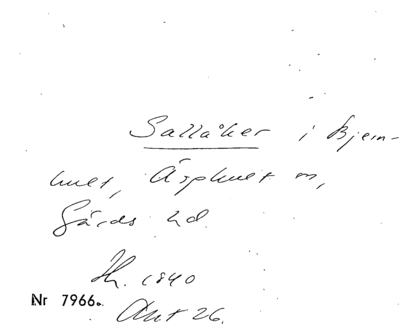 Sallåker i Bjern-
hult, Äsphult sn,
Gärds hd.
Hr. 1840
Nr 7966.
Akt 26.